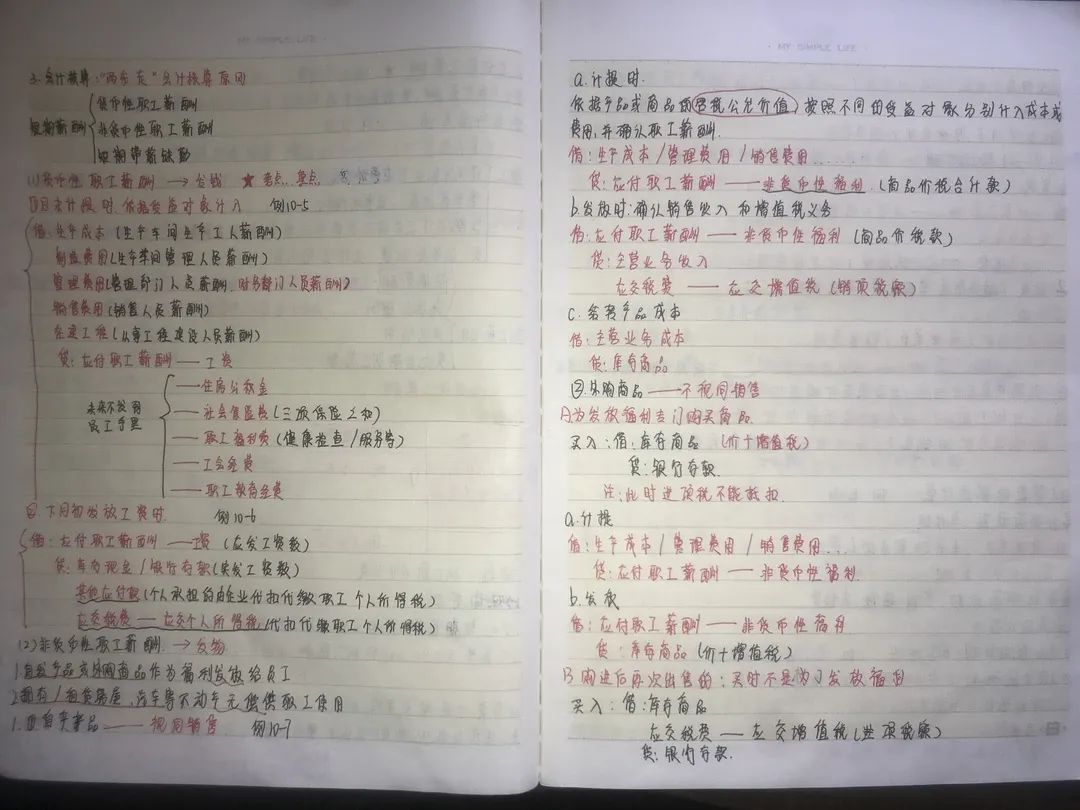 MY SIMPLE LIFE
3.会计核算："两步走"会计核算原则
短期薪酬
货币性职工薪酬
非货币性职工薪酬
短期带薪缺勤
(1)货币性职工薪酬 → 发钱 ★考点、重点
①月末计提时，依据受益对象计入 例10-5
借：生产成本（生产车间生产工人薪酬）
制造费用（生产车间管理人员薪酬）
管理费用（管理部门人员薪酬、财务部门人员薪酬）
销售费用（销售人员薪酬）
在建工程（从事工程建设人员薪酬）
贷：应付职工薪酬——工资
未来不发到员工手里
——住房公积金
——社会保险费（三项保险之和）
——职工福利费（健康检查/服务等）
——工会经费
——职工教育经费
② 下月初发放工资时. 例10-6
借：应付职工薪酬——工资（应发工资数）
贷：库存现金/银行存款（实发工资数）
其他应付款（个人承担的由企业代扣代缴职工个人所得税）
应交税费——应交个人所得税（代扣代缴职工个人所得税）
(2)非货币性职工薪酬. → 发物
1.自发产品或外购商品作为福利发放给员工
2.拥有/租赁房屋、汽车等不动产无偿供职工使用
1.①自产产品——视同销售 例10-7
MY SIMPLE LIFE
a.计提时.
依据产品或商品的含税公允价值，按照不同的受益对象分别计入成本或
费用，并确认职工薪酬.
借：生产成本/管理费用/销售费用......
贷：应付职工薪酬——非货币性福利.（商品价税合计款）
b.发放时：确认销售收入和增值税义务
借：应付职工薪酬——非货币性福利（商品价税款）
贷：主营业务收入
应交税费——应交增值税（销项税额）
c.结转产品成本
借：主营业务成本
贷：库存商品
②外购商品——不视同销售
A.为发放福利专门购买商品.
买入：借：库存商品（价+增值税）
贷：银行存款.
注：此时进项税不能抵扣.
a.计提
借：生产成本/管理费用/销售费用...
贷：应付职工薪酬——非货币性福利.
b.发放
借：应付职工薪酬——非货币性福利
贷：库存商品（价+增值税）
B.购进后再次出售的：买时不是为了发放福利
买入：借：库存商品
应交税费——应交增值税（进项税额）
贷：银行存款.